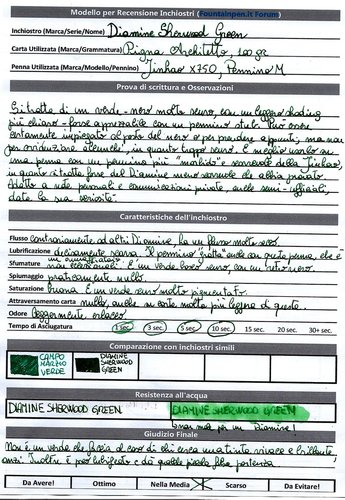 Modello per Recensione Inchiostri (Fountainpen.it Forum)
Inchiostro (Marca/Serie/Nome) Diamine Sherwood Green
Carta Utilizzata (Marca/Grammatura) Pigna Architetto, 100 gr
Penna Utilizzata (Marca/Modello/Pennino) Jinhao X750, Pennino M
Prova di scrittura e Osservazioni
Si tratta di un verde-nero molto scuro, con un leggero shading
più chiaro - forse apprezzabile con un pennino stub. Può essere
certamente impiegato al posto del nero e per prendere appunti, ma non
per evidenziare elementi, in quanto troppo scuro. È meglio usarlo su
una penna con un pennino più "morbido" e scorrevole della Jinhao,
in quanto si tratta forse del Diamine meno scorrevole che abbia provato.
Adatto a note personali e comunicazioni private, anche semi-ufficiali,
data la sua seriosità.
Caratteristiche dell'inchiostro
Flusso contrariamente ad altri Diamine, ha un flusso molto secco.
Lubrificazione decisamente scarsa. Il pennino "gratta" anche con questa penna, che è
Sfumature non eccezionali. È un verde bosco scuro con un retro nero.
Spiumaggio praticamente nullo.
Saturazione buona. È un verde scuro molto pigmentato.
Attraversamento carta nullo, anche su carte molto più leggere di questa.
Odore leggermente oleoso
Tempo di Asciugatura 1 sec. 3 sec. 5 sec. 10 sec. 15 sec. 20 sec. 30+ sec.
Comparazione con inchiostri simili
CAMPO MARZIO VERDE
DIAMINE SHERWOOD GREEN
Resistenza all'acqua
DIAMINE SHERWOOD GREEN DIAMINE SHERWOOD GREEN
(non male per un Diamine!)
Giudizio Finale
Non è un verde che faccia al caso di chi cerca una tinta vivace e brillante,
anzi. Inoltre è poco lubrificato e dà qualche piccolo problema
Da Avere! Ottimo Nella Media Scarso Da Evitare!